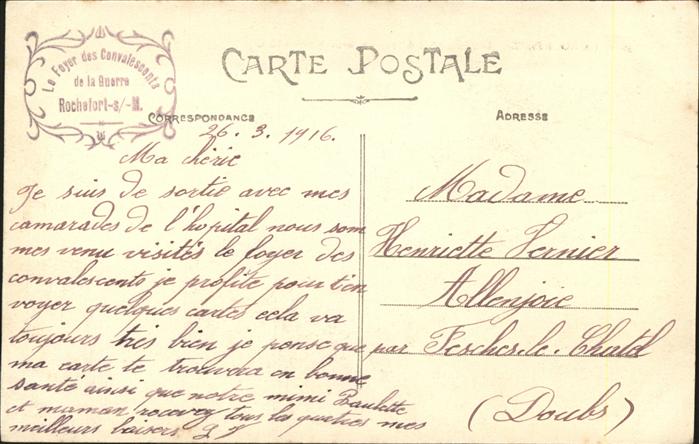 Le Foyer des Convalescents
de la Guerre
Rochefort-s/-M.
CARTE POSTALE
CORRESPONDANCE
ADRESSE
26. 3. 1916.
Ma chérie
Je suis de sortie avec mes
camarades de l'hopital nous som
mes venu visités le foyer des
convalescents je profite pour t'en
voyer quelques cartes cela va
toujours très bien je pense que
ma carte te trouvera en bonne
santé ainsi que notre mimi Paulette
et maman recevez tous les quatres mes
meilleurs baisers
Madame
Henriette Vernier
Allenjoie
par Fesches-le-Chatel
(Doubs)